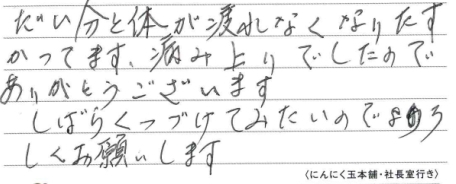 だい分と体が疲れなくなりたす
かってます、病み上りでしたので
ありがとうございます
しばらくつづけてみたいのでよろ
しくお願いします
〈にんにく玉本舗・社長室行き〉